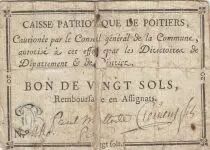 CAISSE PATRIOTIQUE DE POITIERS,
Cautionnée par le Conseil général de la Commune,
autorisé à cet effet par les Directoires de
Département & de District.
BON DE VINGT SOLS,
Remboursable en Assignats.